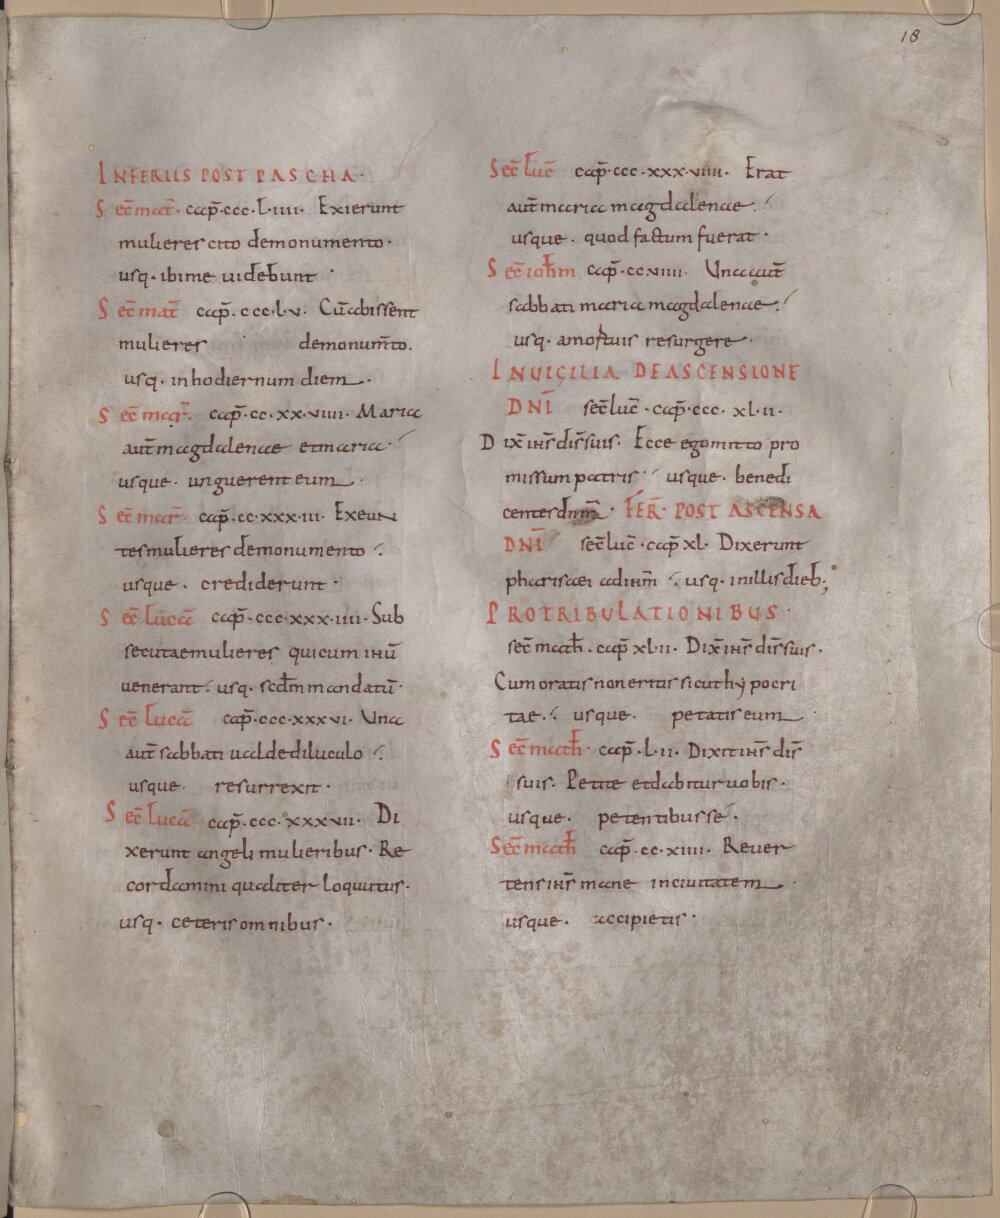 18
INFERIIS POST PASCHA·
Sec̄ mat̄· cap̄·ccc·l·iiii· Exierunt
mulieres cito demonumento·
usq· ibime uidebunt ·
Sec̄ mat̄ cap̄·ccc·l·v· Cū abissent
mulieres demonum̄to.
usq· inhodiernum diem·
Sec̄ mar̄· cap̄·cc·xx·viiii· Maria
aut̄ magdalenae etmaria·
usque· unguerent eum·
Sec̄ mar̄· cap̄·cc·xxx·iii· Exeun
tes mulieres demonumento ·
usque· crediderunt ·
Sec̄ lucā cap̄·ccc·xxx·iiii· Sub
secutae mulieres quicum ihū
uenerant· usq· scd̄m mandatū·
Sec̄ lucā cap̄·ccc·xxxvi· Una
aut̄ sabbati ualde diluculo ·
usque· resurrexit·
Sec̄ lucā cap̄·ccc·xxxvii· Di
xerunt angeli mulieribus· Re
cordamini qualiter loquutus·
usq· ceteris omnibus·
Sec̄ luc̄ cap̄·ccc·xxx·viiii· Erat
aut̄ maria magdalenae·
usque· quod factum fuerat·
Sec̄ ioh̄m cap̄·cc·viiii· Una aut̄
sabbati maria magdalenae·
usq· amortuis resurgere·
INUIGILIA DEASCENSIONE
DNĪ sec̄ luc̄·cap̄·ccc· xl·ii·
Dix̄ ihs̄ dis̄ suis· Ecce egomitto pro
missum patris · usque· benedi
centes dnm̄· FER̄· POST ASCENSA
DNĪ sec̄ luc̄·cap̄ xl· Dixerunt
pharisaei adihm̄ · usq· inillis dieb;
PROTRIBULATIONIBUS·
sec̄ math̄·cap̄ xl·ii· Dix̄ ihs̄ dis̄ suis·
Cum oratis non eritis sicut hypocri
tae· usque· petatis eum·
Sec̄ math̄ cap̄·l·ii· Dixit ihs̄ dis̄
suis· Petite etdabitur uobis·
usque· petentibus se·
Sec̄ math̄ cap̄·cc·xiiii· Reuer
tens ihs̄ mane inciuitatem·
usque· accipietis·